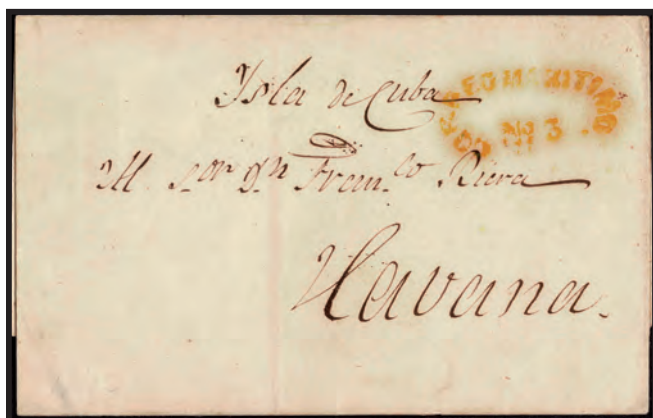 Ysla de Cuba
CORREO MARITIMO
No 3
Al Sor Dn Franco Riera
Havana.